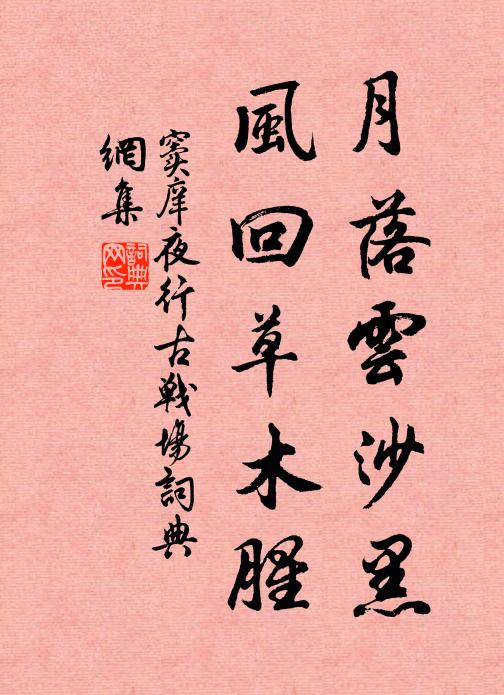 月落雲沙黑
風回草木腥
竇庠夜行古戰場詞典
網集
詞典
网印